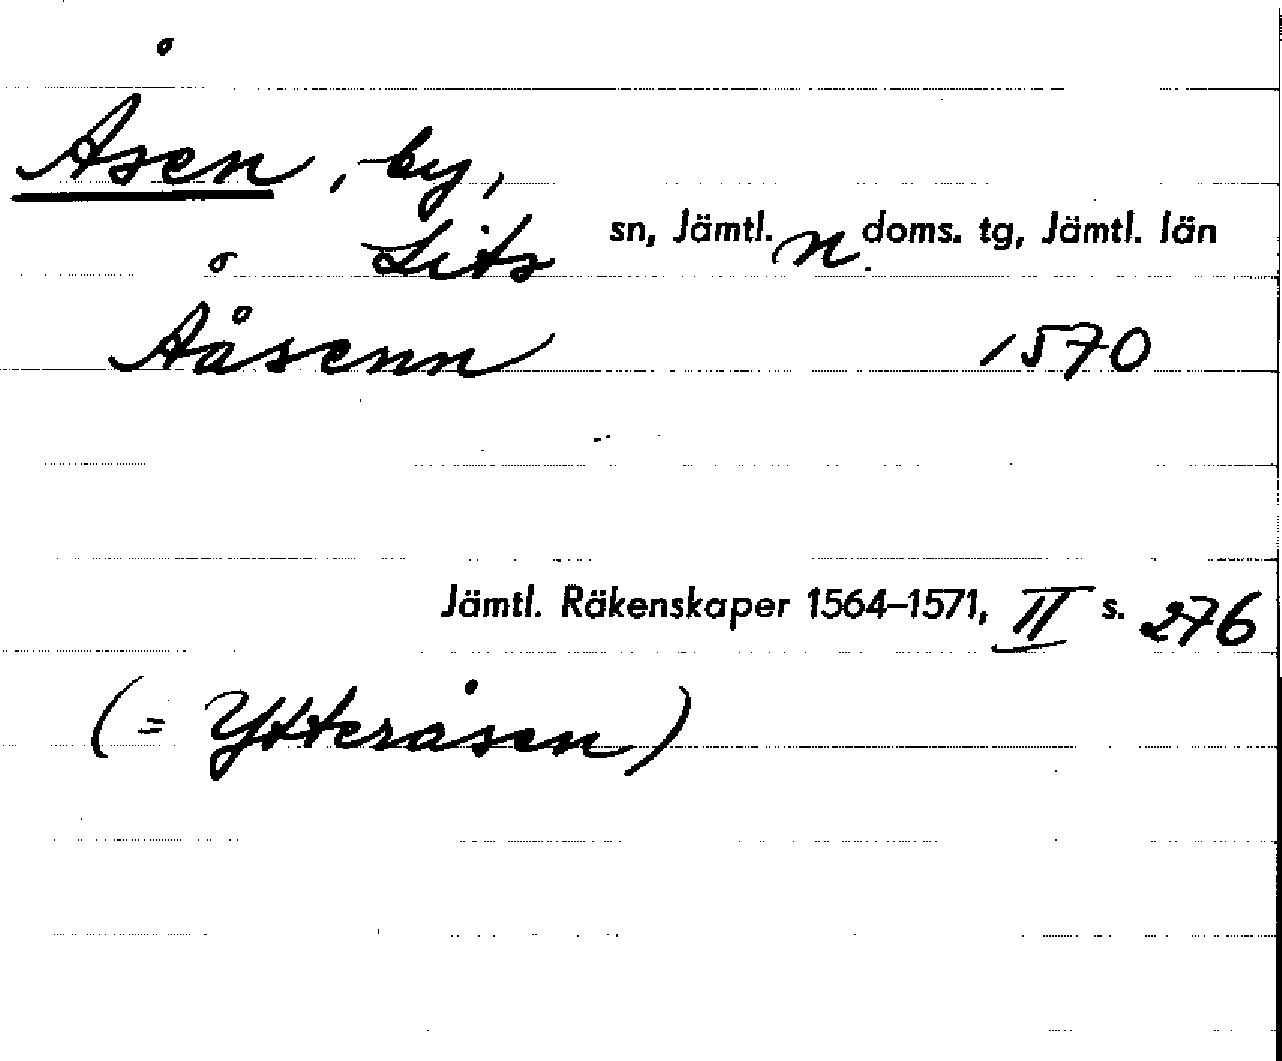 Åsen, by,
Lits sn, Jämtl. n. doms. tg, Jämtl. län
Ååsenn 1570
Jämtl. Räkenskaper 1564–1571, II s. 276
(= Ytteråsen)